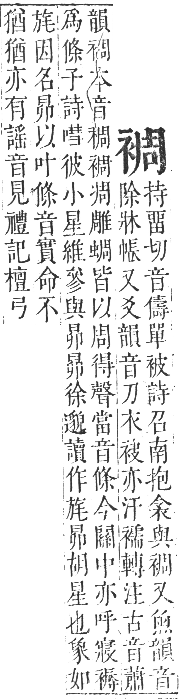 裯
持畱切音儔單被詩召南抱衾與裯又虞韻音
除牀帳又爻韻音刀衣袂亦汗襦轉注古音蕭
韻裯本音稠裯凋雕蜩皆以周得聲當音條今關中亦呼寢褥
爲條子詩嘒彼小星維參與昴昴徐邈讀作旄昴胡星也象如
旄因名昴以叶條音實命不
猶猶亦有謠音見禮記檀弓